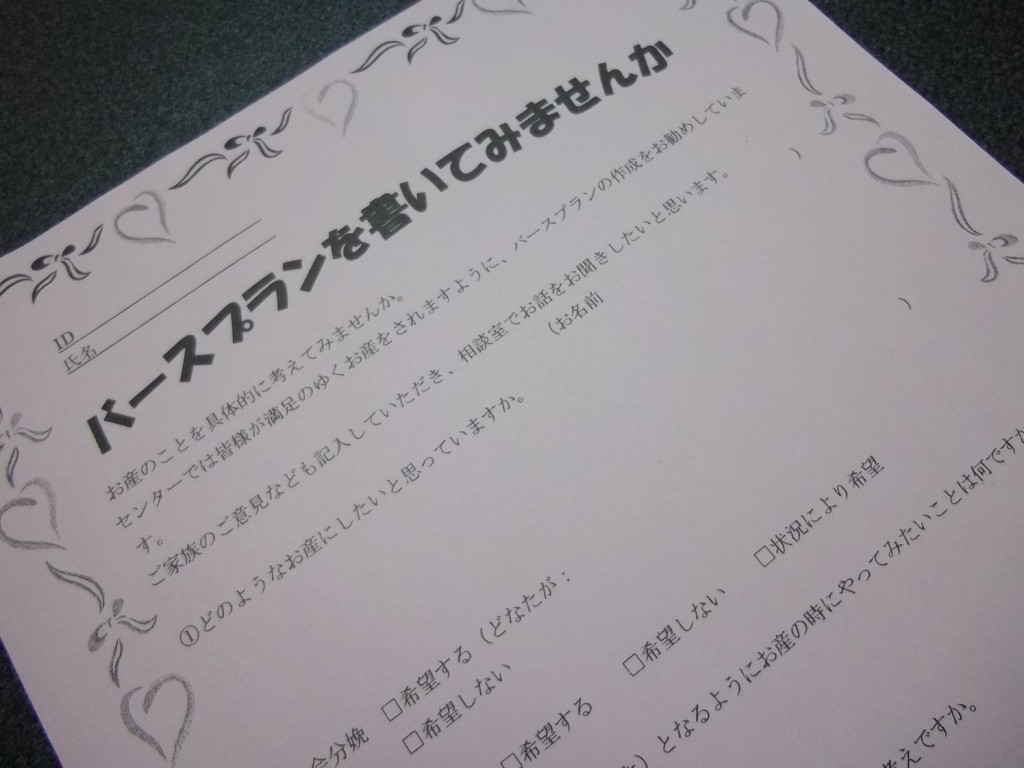 ID
氏名
バースプランを書いてみませんか
お産のことを具体的に考えてみませんか。
センターでは皆様が満足のゆくお産をされますように、バースプランの作成をお勧めしていま
す。
ご家族のご意見なども記入していただき、相談室でお話をお聞きしたいと思います。
①どのようなお産にしたいと思っていますか。
(お名前 )
分娩 □希望する（どなたが： )
□希望しない
□希望する □希望しない □状況により希望
）となるようにお産の時にやってみたいことは何ですか
考えですか。